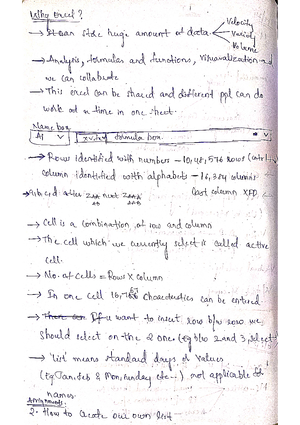 Why Excel?
→ It can store huge amount of data
Velocity
Variety
Volume
→ Analysis, formulas and functions, visuvalization and
we can collabrate
→ This excel can be shared and different ppl can do
work at a time in one sheet.
Name box
A1 formula box
→ Rows identified with numbers - 10,48,576 rows
column identified with alphabets - 16,384 columns
Last column XFD
a,b,c,d after Z next
→ Cell is a combination of row and column
→ The cell which we currently select is called active
cell.
→ No. of Cells = Rows X column
→ In one cell Characteristics can be entered.
→ If u want to insert row b/w rows we
should select on the 2 one (eg b/w 2 and 3, select
→ 'list' means standard days or values
(Eg Jan, Feb & Mon, etc..) not applicable for
names.
Assignments:
2. How to create our own list